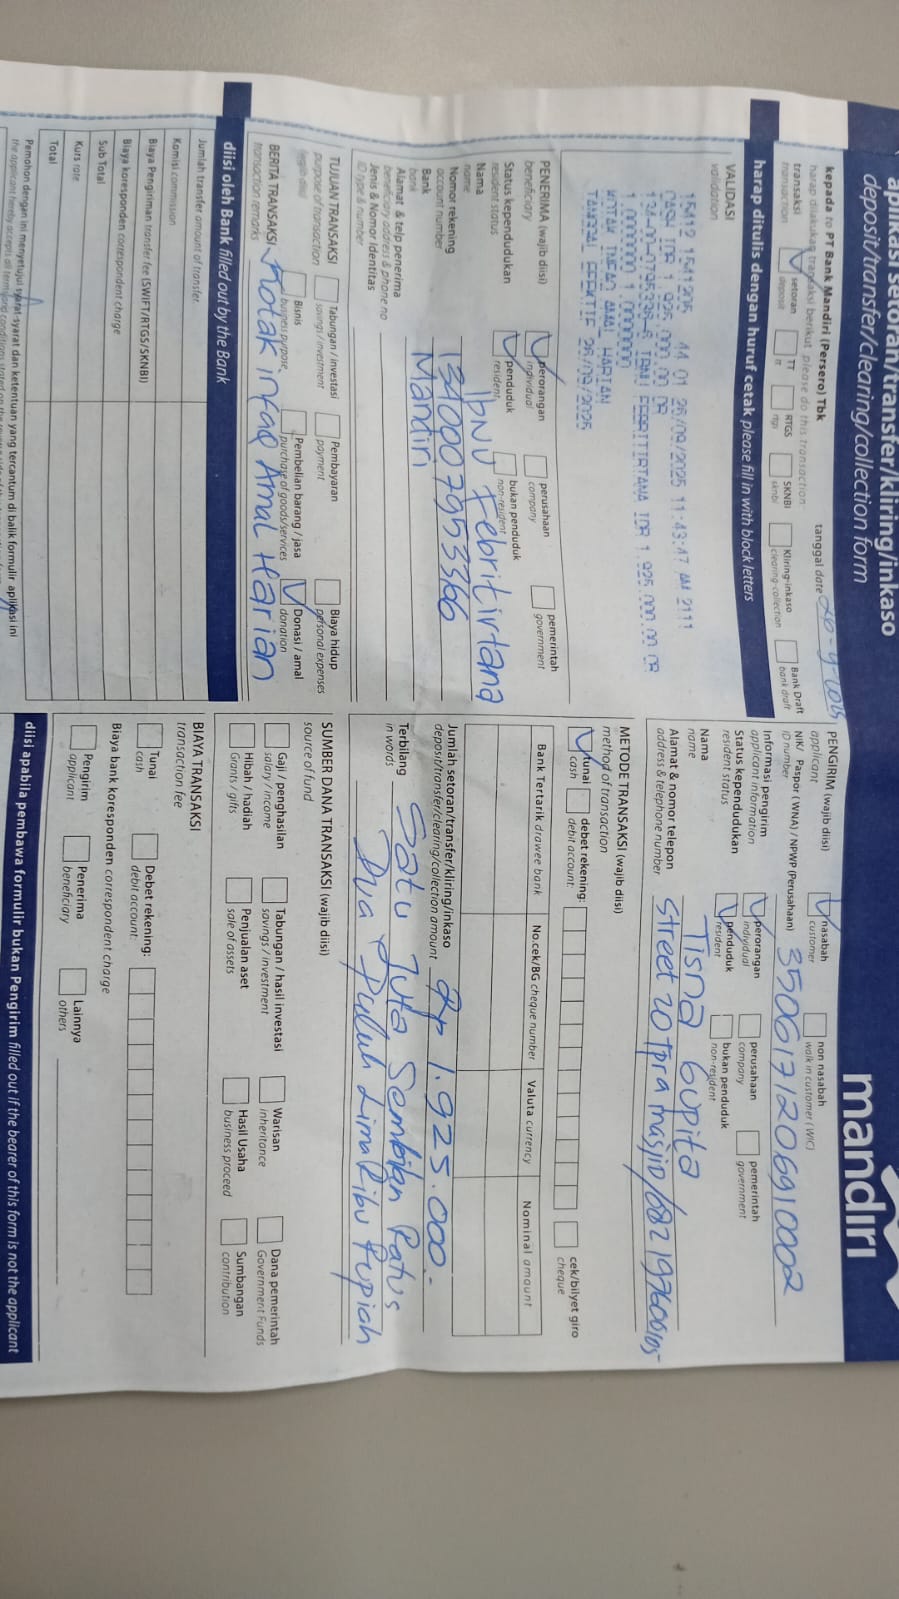 aplikasi setoran/transfer/kliring/inkaso
deposit/transfer/clearing/collection form
mandiri
kepada to PT Bank Mandiri (Persero) Tbk
tanggal date
harap dilakukan transaksi berikut please do this transaction
transaksi
transaction
setoran
deposit
TT
tt
RTGS
rtgs
SKNBI
sknbi
Kliring-inkaso
clearing-collection
Bank Draft
bank draft
harap ditulis dengan huruf cetak please fill in with block letters
VALIDASI
validation
15412 1541205 44 01 26/09/2025 11:43:47 AM 2111
CASH IDR 1.925.000.00 CR
IDR 1.925.000.00 CR
1.0000000 1.0000000
KOTAK INFAQ AMAL HARIAN
TANGGAL EFEKTIF 26/09/2025
PENERIMA (wajib diisi)
beneficiary
perorangan
individual
perusahaan
company
pemerintah
government
Status kependudukan
resident status
penduduk
resident
bukan penduduk
non-resident
Nama
name
Ibnu Febritirtana
Nomor rekening
account number
Bank
bank
Mandiri
Alamat & telp penerima
beneficiary address & phone no
Jenis & Nomor Identitas
ID type & number
TUJUAN TRANSAKSI
purpose of transaction
Tabungan / Investasi
savings / investment
Pembayaran
payment
Biaya hidup
personal expenses
Bisnis
business purpose
Pembelian barang / jasa
purchase of goods/services
Donasi / amal
donation
BERITA TRANSAKSI
transaction remarks
Kotak infaq Amal Harian
diisi oleh Bank filled out by the Bank
Jumlah transfer amount of transfer
Komisi commission
Biaya Pengiriman transfer fee (SWIFT/RTGS/SKNBI)
Biaya koresponden correspondent charge
Sub Total
Kurs rate
Total
Pemohon dengan ini menyetujui syarat-syarat dan ketentuan yang tercantum di balik formulir aplikasi ini
PENGIRIM (wajib diisi)
applicant
nasabah
customer
non nasabah
walk in customer (WIC)
NIK/ Paspor (WNA) / NPWP (Perusahaan)
ID number
3506171206910002
Informasi pengirim
applicant information
perorangan
individual
perusahaan
company
pemerintah
government
Status kependudukan
resident status
penduduk
resident
bukan penduduk
non-resident
Nama
name
Tisna Gupita
Alamat & nomor telepon
address & telephone number
METODE TRANSAKSI (wajib diisi)
method of transaction
tunai
cash
debet rekening:
debit account:
cek/bilyet giro
cheque
Bank Tertarik drawee bank
No.cek/BG cheque number
Valuta currency
Nominal amount
Jumlah setoran/transfer/kliring/inkaso
deposit/transfer/clearing/collection amount
Rp 1.925.000.-
Terbilang
in words
Satu Juta Sembilan Ratus
Dua Puluh Lima Ribu Rupiah
SUMBER DANA TRANSAKSI (wajib diisi)
source of fund
Gaji / penghasilan
salary / income
Tabungan / hasil investasi
savings / investment
Warisan
inheritance
Dana pemerintah
Government Funds
Hibah / hadiah
Grants / gifts
Penjualan aset
sale of assets
Hasil Usaha
business proceed
Sumbangan
contribution
BIAYA TRANSAKSI
transaction fee
Tunai
cash
Debet rekening:
debit account:
Biaya bank koresponden correspondent charge
Pengirim
applicant
Penerima
beneficiary
Lainnya
others
diisi apabila pembawa formulir bukan Pengirim filled out if the bearer of this form is not the applicant